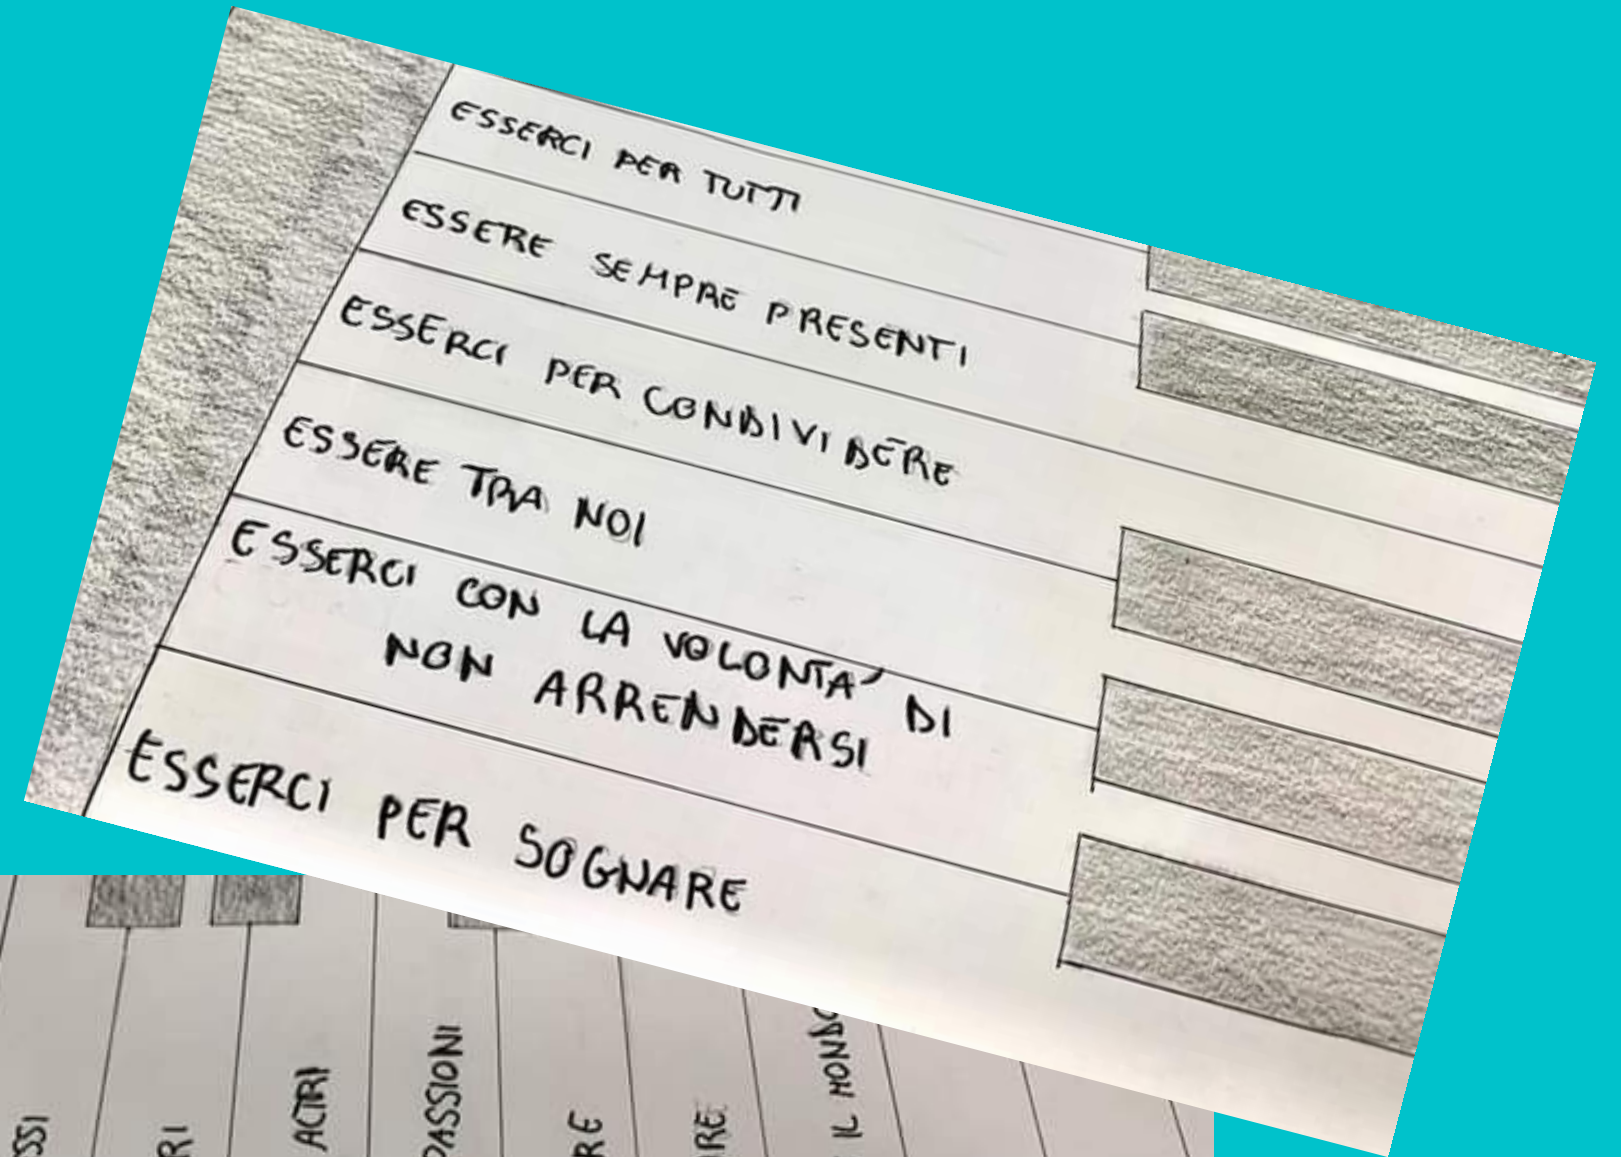 ESSERCI PER TUTTI
ESSERE SEMPRE PRESENTI
ESSERCI PER CONDIVIDERE
ESSERE TRA NOI
ESSERCI CON LA VOLONTA' DI
NON ARRENDERSI
ESSERCI PER SOGNARE
ALTRI
PASSIONI
IL MONDO